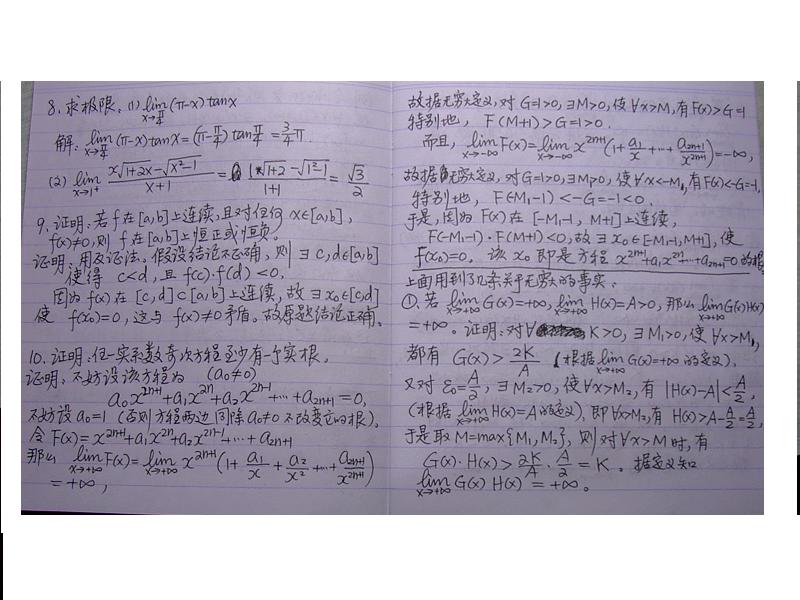 8. 求极限. (1) lim_{x→π/4} (π-x) tanx
解: lim_{x→π/4} (π-x) tanx = (π-π/4) tan π/4 = 3/4 π.
(2) lim_{x→1+} (x√(1+2x) - √(x²-1))/(x+1) = (1·√(1+2) - √(1²-1))/(1+1) = √3/2
9. 证明: 若 f 在 [a,b] 上连续, 且对任何 x∈[a,b],
f(x)≠0, 则 f 在 [a,b] 上恒正或恒负.
证明: 用反证法. 假设结论不正确, 则 ∃ c,d∈[a,b]
使得 c<d, 且 f(c)·f(d)<0.
因为 f(x) 在 [c,d]⊂[a,b] 上连续, 故 ∃ x₀∈[c,d]
使 f(x₀)=0, 这与 f(x)≠0 矛盾。故原题结论正确。
10. 证明: 任一实系数奇次方程至少有一个实根.
证明: 不妨设该方程为 (a₀≠0)
a₀x^{2n+1}+a₁x^{2n}+a₂x^{2n-1}+…+a_{2n+1}=0,
不妨设 a₀=1 (否则方程两边同除 a₀≠0 不改变它的根),
令 F(x)=x^{2n+1}+a₁x^{2n}+a₂x^{2n-1}+…+a_{2n+1}
那么 lim_{x→+∞} F(x)=lim_{x→+∞} x^{2n+1}(1+a₁/x+a₂/x²+…+a_{2n+1}/x^{2n+1})
=+∞,
故据无穷大定义, 对 G=1>0, ∃M>0, 使 ∀x>M, 有 F(x)>G=1
特别地, F(M+1)>G=1>0.
而且, lim_{x→-∞} F(x)=lim_{x→-∞} x^{2n+1}(1+a₁/x+…+a_{2n+1}/x^{2n+1})=-∞,
故据无穷大定义, 对 G=1>0, ∃M₁>0, 使 ∀x<-M₁, 有 F(x)<-G=-1,
特别地, F(-M₁-1)<-G=-1<0.
于是, 因为 F(x) 在 [-M₁-1, M+1] 上连续,
F(-M₁-1)·F(M+1)<0, 故 ∃ x₀∈[-M₁-1,M+1], 使
f(x₀)=0, 该 x₀ 即是方程 x^{2n+1}+a₁x^{2n}+…+a_{2n+1}=0 的根.
上面用到了几条关于无穷大的事实.
①. 若 lim_{x→+∞} G(x)=+∞, lim_{x→+∞} H(x)=A>0, 那么 lim_{x→+∞} G(x)H(x)
=+∞。证明: 对∀ K>0, ∃ M₁>0, 使 ∀x>M₁,
都有 G(x)>2K/A (根据 lim_{x→+∞} G(x)=+∞ 的定义),
又对 ε₀=A/2, ∃ M₂>0, 使∀x>M₂, 有 |H(x)-A|<A/2,
(根据 lim_{x→+∞} H(x)=A 的定义), 即 ∀x>M₂, 有 H(x)>A-A/2=A/2,
于是取 M=max{M₁,M₂}, 则对 ∀x>M 时, 有
G(x)·H(x)>2K/A·A/2=K。据定义知
lim_{x→+∞} G(x) H(x)=+∞。